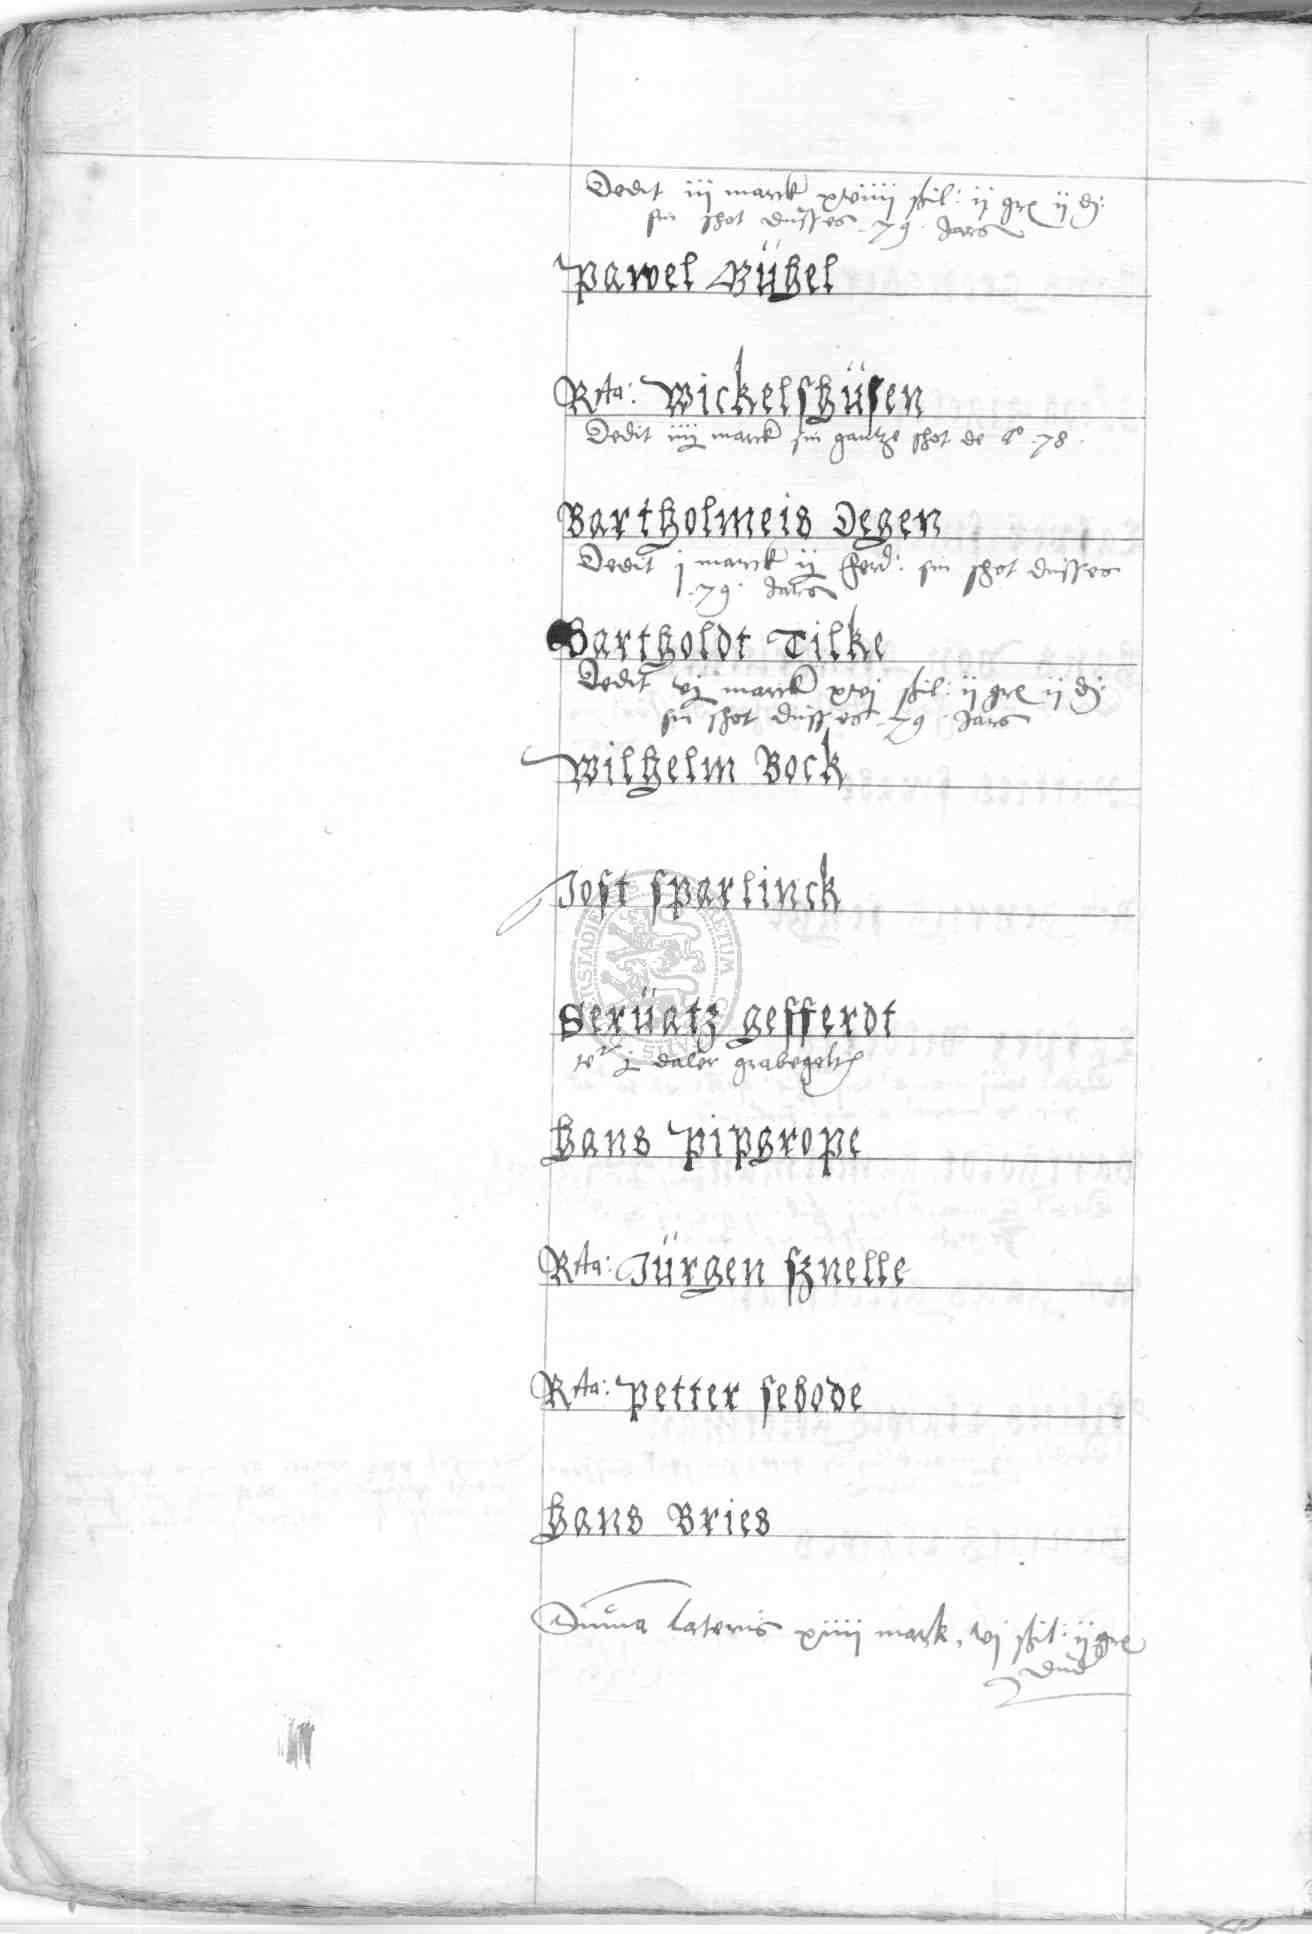 Dedit iij marck xviiij ßil: ij gre ij d:
sin schot düsses .79. Jars
Pawel Bühel
Rta: Wickelshüsen
Dedit iiij marck sin gantze schot de ao .78.
Bartholmeis Degen
Dedit j marck ij ferd: sin schot düsses
.79. Jars
Bartholdt Tilke
Dedit vj marck xvj ßil: ij gre ij d:
sin schot düsses .79. Jars
Wilhelm Bock
Jost Sparlinck
Serüatz gefferdt
j daler grabegelt
Hans Pipgrope
Rta: Jürgen sznelle
Rta: Petter sebode
Hans Bries
Suma lateris xiiii mark, vj ßil: ij gre